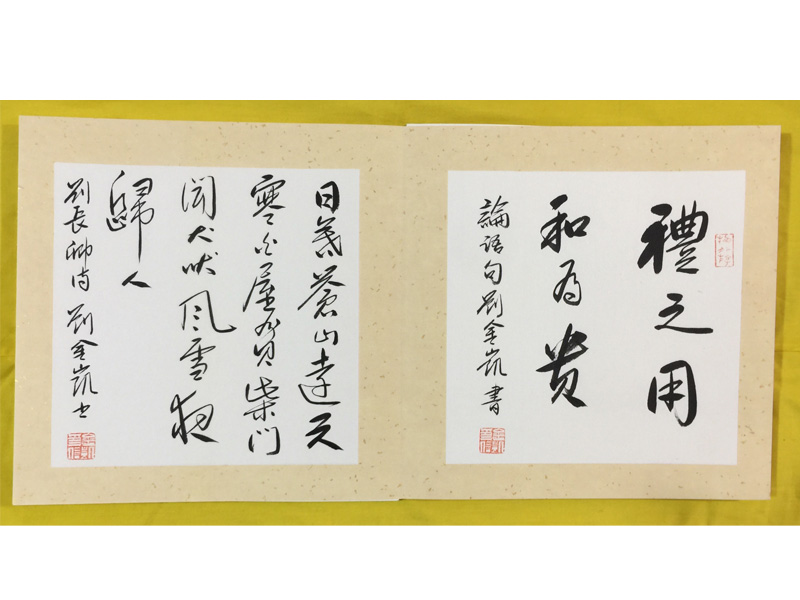 禮之用
和为貴
論語句劉金凱書
日暮蒼山遠天
寒白屋貧柴門
聞犬吠風雪夜
歸人
劉長卿詩 劉金凱书